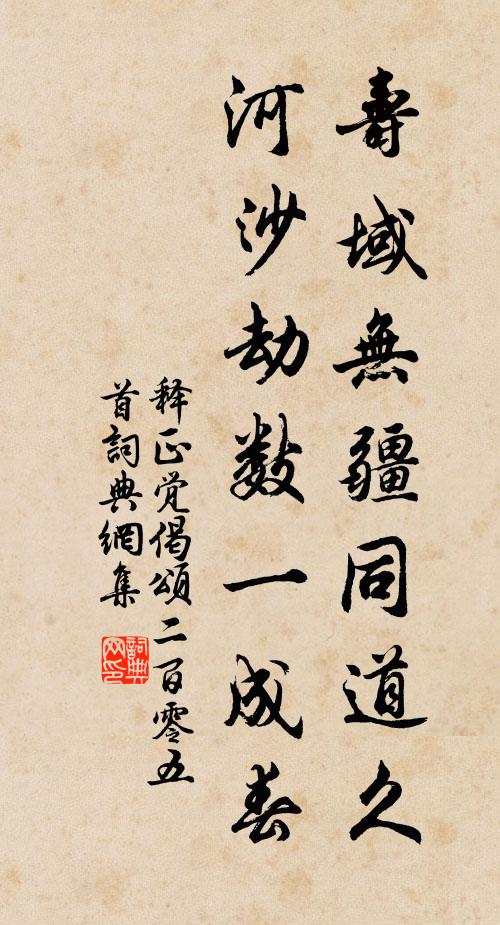 壽域無疆同道久
河沙劫数一成春
释正覚偈頌二百零五
首詞典網集
詞典网印